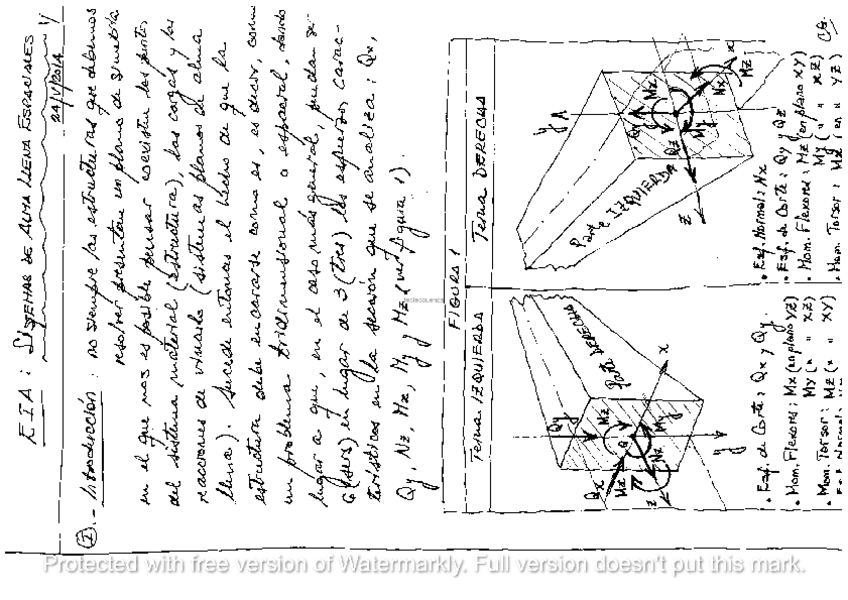 EIA : SISTEMAS DE ALMA LLENA ESPACIALES
29/V/2014
1/
I).- Introducción : no siempre las estructuras que debemos
resolver presentan un plano de simetría
en el que nos es posible pensar coexisten los puntos
del sistema material (estructura), las cargas y las
reacciones de vínculo (sistemas planos de alma
llena). Sucede entonces el hecho de que la
estructura debe encararse como es, es decir, como
un problema tridimensional o espacial, dando
lugar a que, en el caso más general, puedan se-
6 (seis) en lugar de 3 (tres) los esfuerzos carac-
terísticos en la sección que se analiza : Qx,
Qy, Nz, Mx, My y Mz (ver figura 1).
FIGURA 1
Terna IZQUIERDA
Terna DERECHA
Parte DERECHA
Qy
Qx
Mz
Mx
G
My
Nz
x
y
z
Parte IZQUIERDA
y
Qy
Mx
My
Qz
Nx
Mz
x
z
• Esf. de Corte : Qx y Qy.
• Mom. Flexores : Mx (en plano YZ)
My (" " XZ)
• Mom. Torsor : Mz (" " XY)
• Esf. Normal : Nz
• Esf. Normal : Nx
• Esf. de Corte : Qy y Qz
• Mom. Flexores : Mz (en plano XY)
My (" " XZ)
• Mom. Torsor : Mx (en " YZ)
Protected with free version of Watermarkly. Full version doesn't put this mark.